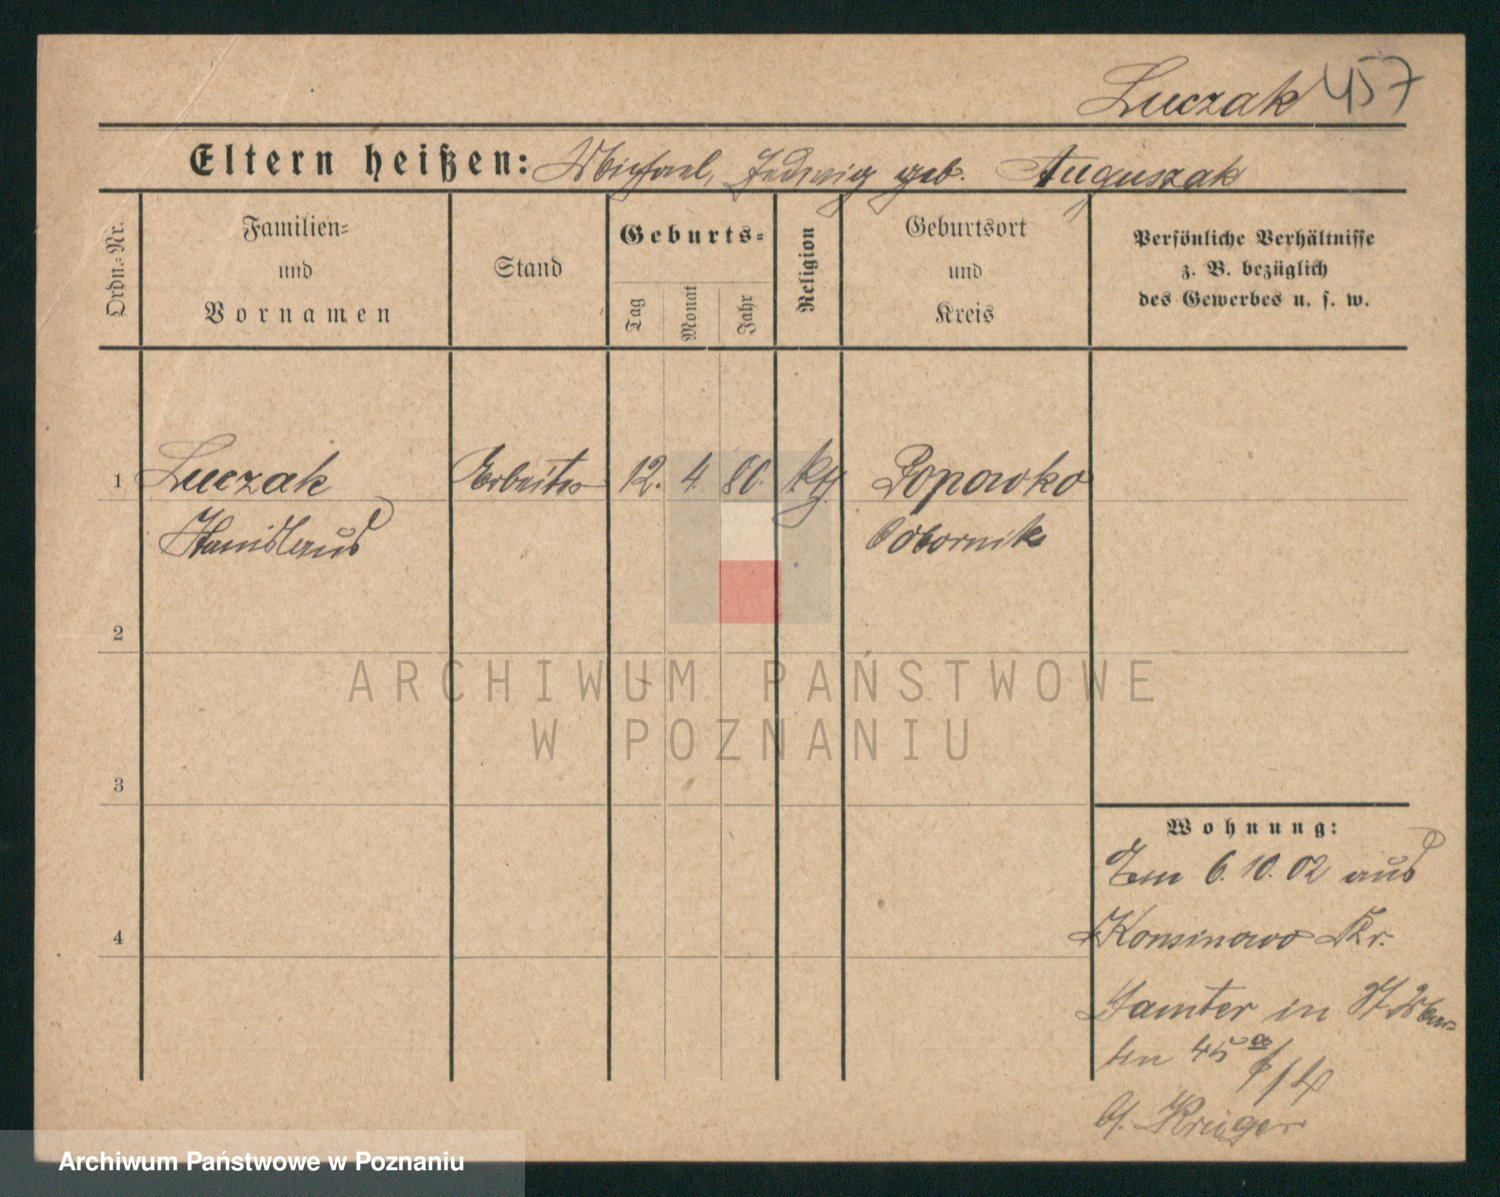 Luczak 457
Eltern heißen: Michael, Hedwig geb. Auguszak
Ordn.-Nr.
Familien-
und
Vornamen
Stand
Geburts-
Tag
Monat
Jahr
Religion
Geburtsort
und
Kreis
Persönliche Verhältnisse
z. B. bezüglich
des Gewerbes u. s. w.
1 Luczak Arbeiter 12. 4. 80. kth Popowko
Stanislaus Obornik
2
ARCHIWUM PAŃSTWOWE
W POZNANIU
3
4
Wohnung:
Am 6.10.02 aus
Konsinowo Kr.
Samter in St.
45
b/. Krüger
Archiwum Państwowe w Poznaniu